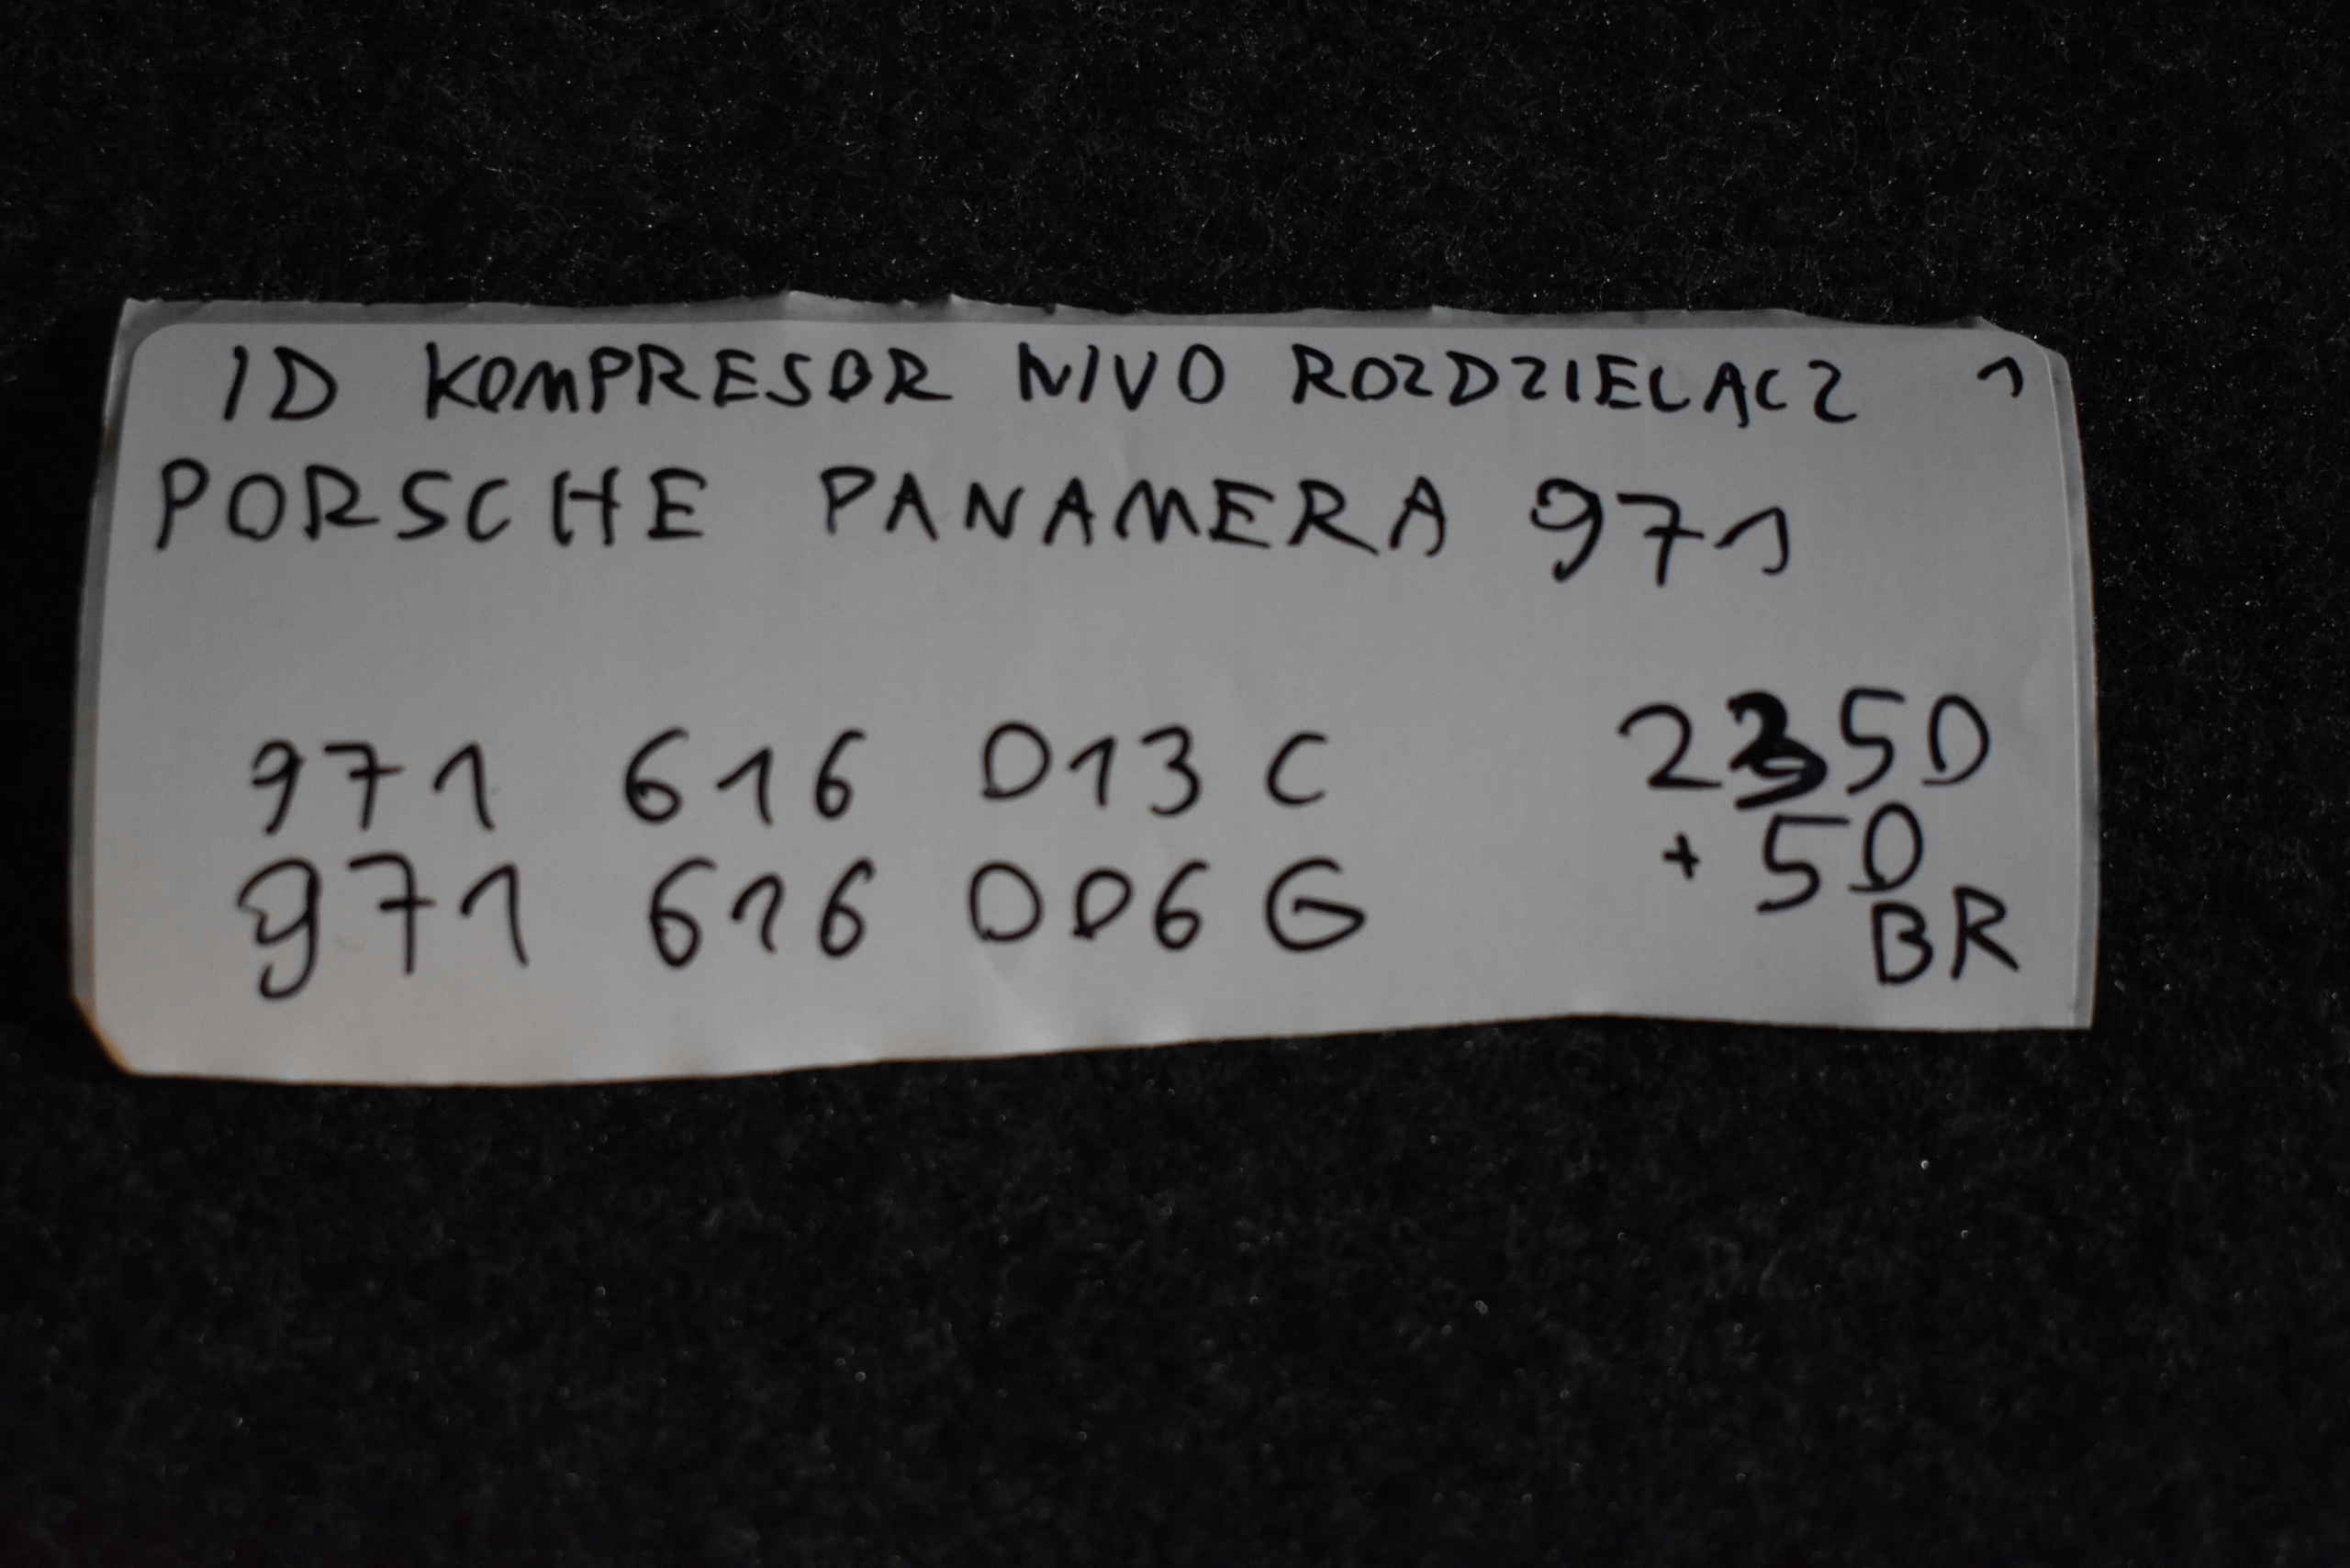 ID KOMPRESOR NIVO ROZDZIELACZ 1
PORSCHE PANAMERA 971
971 616 013 C
971 616 006 G
2350
+ 50
BR